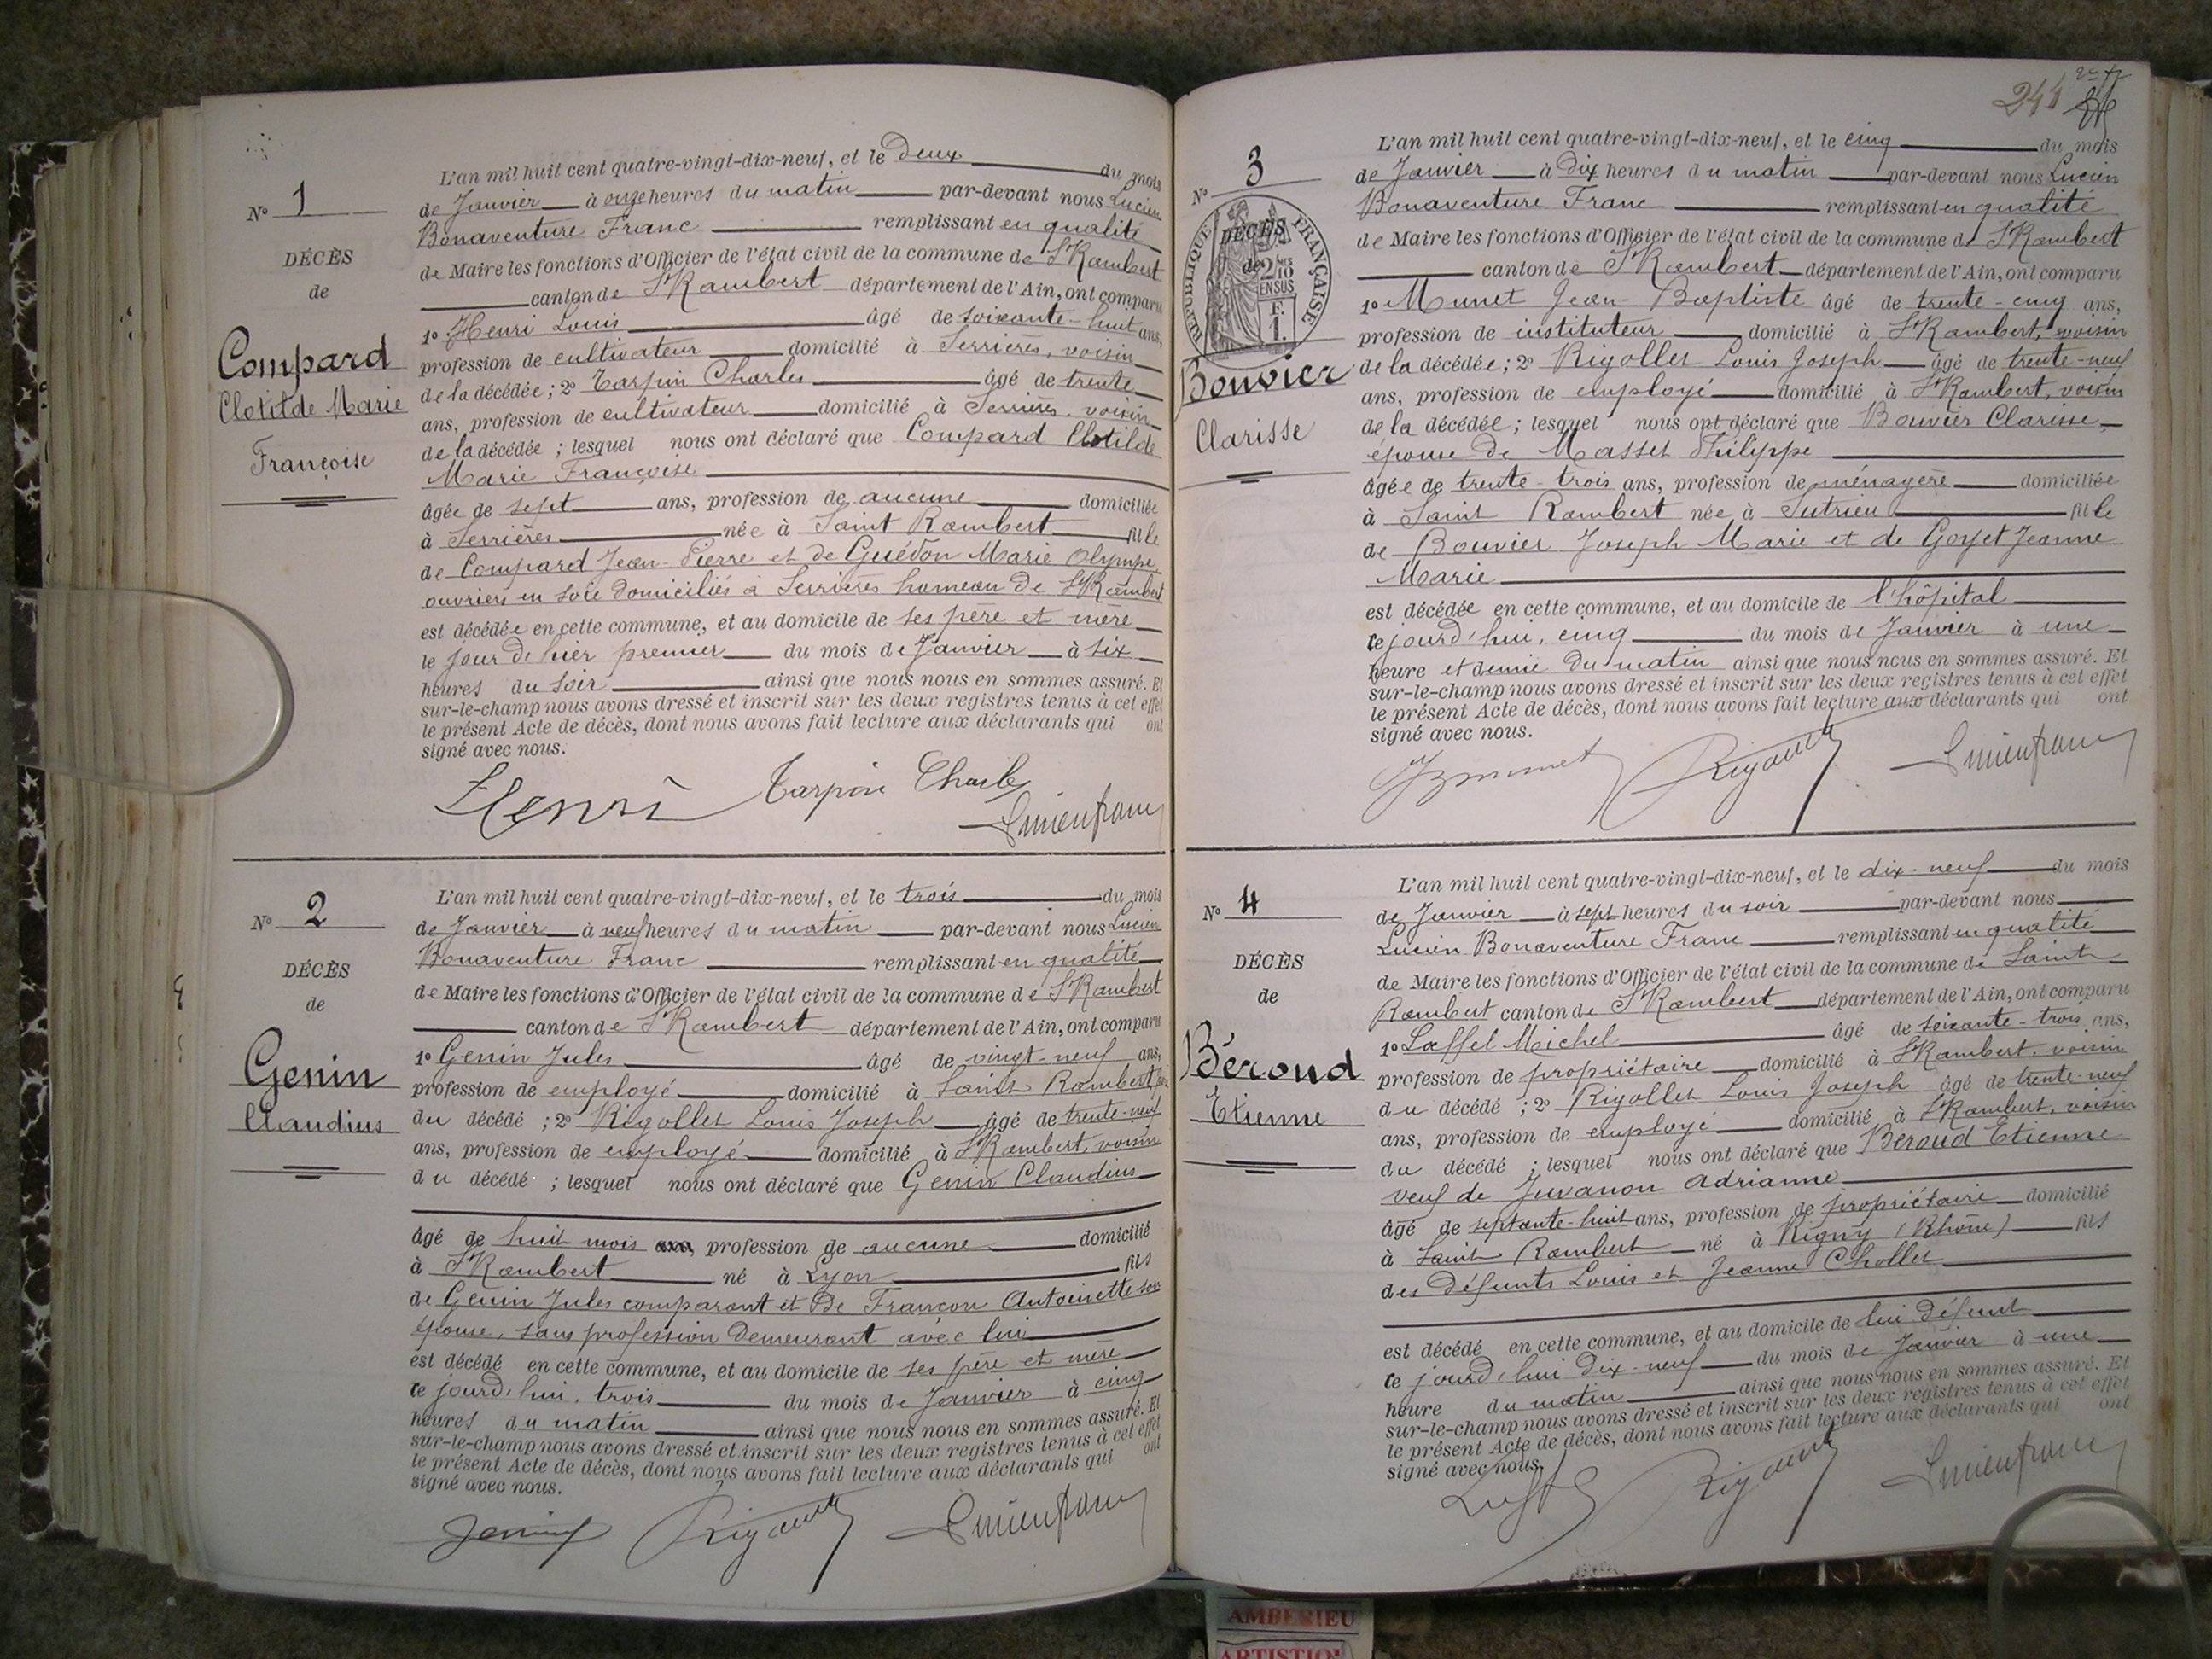 N° 1
DÉCÈS
de
Compard
Clotilde Marie
Françoise
L'an mil huit cent quatre-vingt-dix-neuf, et le Deux du mois
de Janvier à onze heures du matin par-devant nous Lucien
Bonaventure Franc remplissant en qualité
de Maire les fonctions d'Officier de l'état civil de la commune de St Rambert
canton de St Rambert département de l'Ain, ont comparu
1° Henri Louis âgé de soixante-huit ans,
profession de cultivateur domicilié à Serrières, voisin
de la décédée ; 2° Tarpin Charles âgé de trente
ans, profession de cultivateur domicilié à Serrières, voisin
de la décédée ; lesquel nous ont déclaré que Compard Clotilde
Marie Françoise
âgée de sept ans, profession de aucune domiciliée
à Serrières née à Saint Rambert fille
de Compard Jean-Pierre et de Guédon Marie Olympe,
ouvriers en soie domiciliés à Serrières hameau de St Rambert
est décédée en cette commune, et au domicile de ses père et mère
le jour d'hier premier du mois de Janvier à six
heures du soir ainsi que nous nous en sommes assuré. Et
sur-le-champ nous avons dressé et inscrit sur les deux registres tenus à cet effet
le présent Acte de décès, dont nous avons fait lecture aux déclarants qui ont
signé avec nous.
Henri Tarpin Charles Lucien franc
N° 2
DÉCÈS
de
Genin
Claudius
L'an mil huit cent quatre-vingt-dix-neuf, et le trois du mois
de Janvier à neuf heures du matin par-devant nous Lucien
Bonaventure Franc remplissant en qualité
de Maire les fonctions d'Officier de l'état civil de la commune de St Rambert
canton de St Rambert département de l'Ain, ont comparu
1° Genin Jules âgé de vingt-neuf ans,
profession de employé domicilié à Saint Rambert
du décédé ; 2° Rigollet Louis Joseph âgé de trente-neuf
ans, profession de employé domicilié à St Rambert, voisin
du décédé ; lesquel nous ont déclaré que Genin Claudius
âgé de huit mois ans, profession de aucune domicilié
à St Rambert né à Lyon fils
de Genin Jules comparant et de Françon Antoinette son
épouse, sans profession demeurant avec lui
est décédé en cette commune, et au domicile de ses père et mère
ce jourd'hui, trois du mois de Janvier à cinq
heures du matin ainsi que nous nous en sommes assuré. Et
sur-le-champ nous avons dressé et inscrit sur les deux registres tenus à cet effet
le présent Acte de décès, dont nous avons fait lecture aux déclarants qui ont
signé avec nous.
Genin Rigollet Lucien franc
241
N° 3
RÉPUBLIQUE FRANÇAISE
2/10 EN SUS
F. 1.
DÉCÈS
de
Bouvier
Clarisse
L'an mil huit cent quatre-vingt-dix-neuf, et le cinq du mois
de Janvier à Dix heures du matin par-devant nous Lucien
Bonaventure Franc remplissant en qualité
de Maire les fonctions d'Officier de l'état civil de la commune de St Rambert
canton de St Rambert département de l'Ain, ont comparu
1° Munet Jean-Baptiste âgé de trente-cinq ans,
profession de instituteur domicilié à St Rambert, voisin
de la décédée ; 2° Rigollet Louis Joseph âgé de trente-neuf
ans, profession de employé domicilié à St Rambert, voisin
de la décédée ; lesquel nous ont déclaré que Bouvier Clarisse
épouse de Masset Philippe
âgée de trente-trois ans, profession de ménagère domiciliée
à Saint Rambert née à Sutrieu fille
de Bouvier Joseph Marie et de Goyet Jeanne
Marie
est décédée en cette commune, et au domicile de l'hôpital
ce jourd'hui, cinq du mois de Janvier à une
heure et demie du matin ainsi que nous nous en sommes assuré. Et
sur-le-champ nous avons dressé et inscrit sur les deux registres tenus à cet effet
le présent Acte de décès, dont nous avons fait lecture aux déclarants qui ont
signé avec nous.
Rigollet Lucien franc
N° 4
DÉCÈS
de
Béroud
Étienne
L'an mil huit cent quatre-vingt-dix-neuf, et le dix-neuf du mois
de Janvier à sept heures du soir par-devant nous
Lucien Bonaventure Franc remplissant en qualité
de Maire les fonctions d'Officier de l'état civil de la commune de Saint
Rambert canton de St Rambert département de l'Ain, ont comparu
1° Laffel Michel âgé de soixante-trois ans,
profession de propriétaire domicilié à St Rambert, voisin
du décédé ; 2° Rigollet Louis Joseph âgé de trente-neuf
ans, profession de employé domicilié à St Rambert, voisin
du décédé ; lesquel nous ont déclaré que Béroud Étienne
veuf de Juvanon Adrianne
âgé de septante-huit ans, profession de propriétaire domicilié
à Saint Rambert né à Rigny (Rhône) fils
des défunts Louis et Jeanne Chollet
est décédé en cette commune, et au domicile de lui défunt
ce jourd'hui dix-neuf du mois de Janvier à une
heure du matin ainsi que nous nous en sommes assuré. Et
sur-le-champ nous avons dressé et inscrit sur les deux registres tenus à cet effet
le présent Acte de décès, dont nous avons fait lecture aux déclarants qui ont
signé avec nous.
Rigollet Lucien franc
AMBERIEU